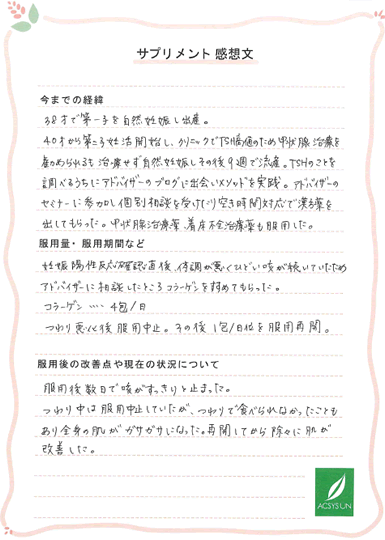 サプリメント 感想文
今までの経緯
38才で第一子を自然妊娠し出産。
40才から第二子妊活開始し、クリニックでTSH高値のため甲状腺治療を
勧められるも治療せず自然妊娠しその後9週で流産。TSHのことを
調べるうちにアドバイザーのブログに出会いメソッドを実践。アドバイザーの
セミナーに参加し個別相談を受けたり空き時間対応で漢方薬を
出してもらった。甲状腺治療薬、着床不全治療薬も服用した。
服用量・服用期間など
妊娠陽性反応確認直後、体調が悪くひどい咳が続いていたため
アドバイザーに相談したところコラーゲンを勧めてもらった。
コラーゲン ‥‥ 4包/日
つわり悪化後服用中止。その後1包/日位を服用再開。
服用後の改善点や現在の状況について
服用後数日で咳がすっきりと止まった。
つわり中は服用中止していたが、つわりで食べられなかったことも
あり全身の肌がガサガサになった。再開してから除々に肌が
改善した。
ACSYSUN